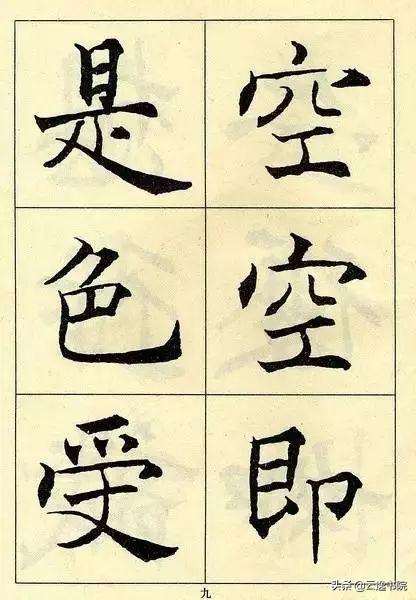 空空即
是色受
九
头条@云逸书院